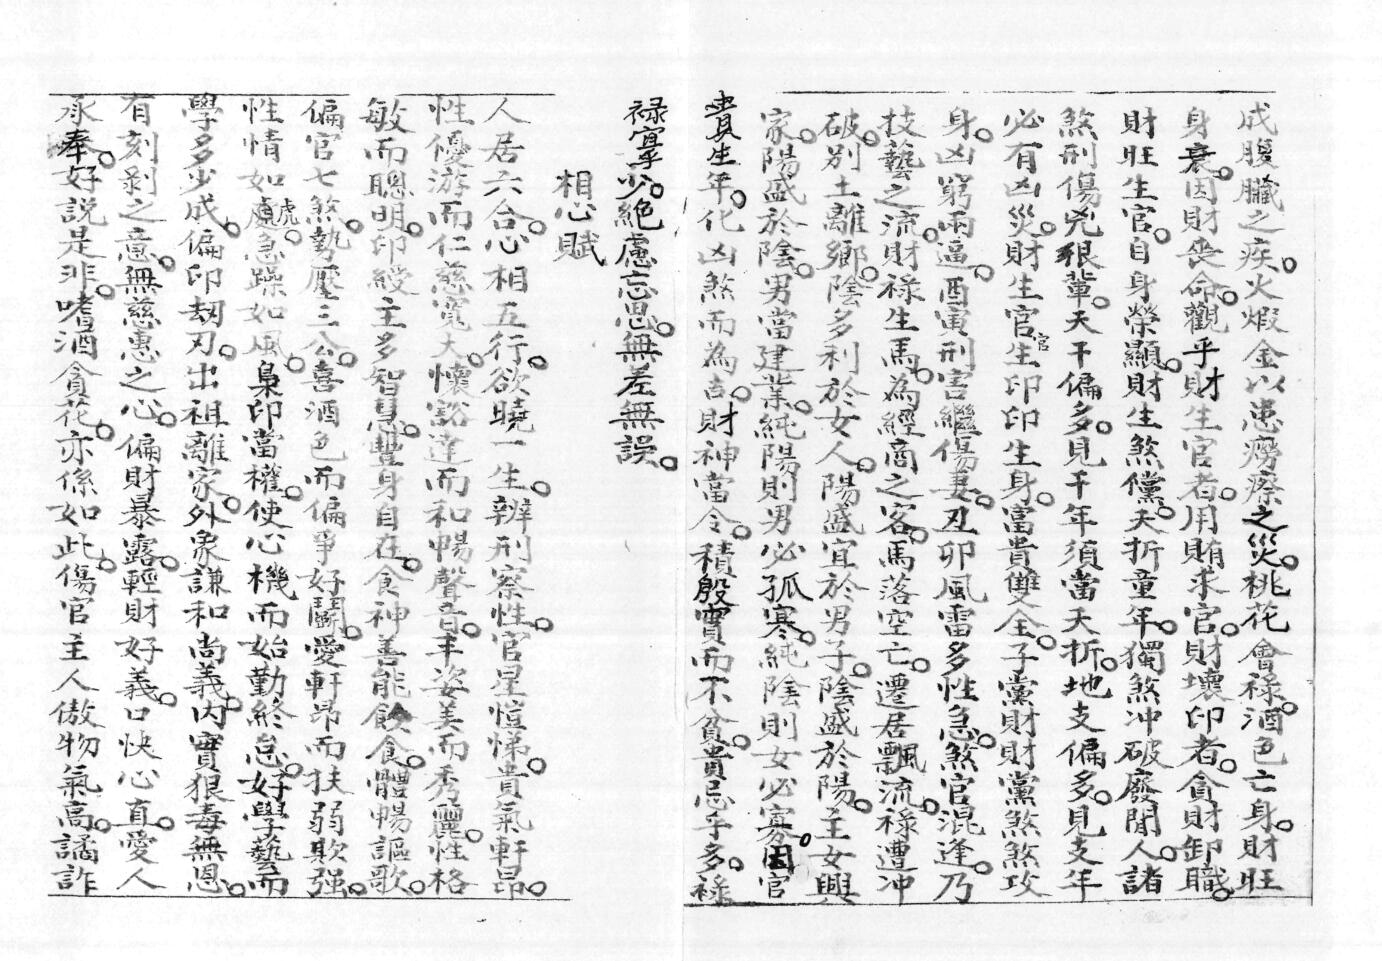 成腹臟之疾。火煆金以患癆瘵之災。桃花會祿。酒色亡身。財旺
身衰。因財喪命。觀乎財生官者。用賄求官。財壞印者。貪財卸職。
財旺生官。自身榮顯。財生煞儻。夭折童年。獨煞冲破廢閒人。諸
煞刑傷兇狠輩。天干偏多。見干年須當夭折。地支偏多。見支年
必有凶災。財生官官生印印生身。富貴雙全。子黨財財黨煞煞攻
身。凶窮兩逼。酉寅刑害繼傷妻。丑卯風雷多性急。煞官混逢。乃
技藝之流。財祿生馬。為經商之客。馬落空亡。遷居飄流。祿遭冲
破。別土離鄉。陰多利於女人。陽盛宜於男子。陰盛於陽。主女興
家。陽盛於陰。男當建業。純陽則男必孤寒。純陰則女必寡。因官
貴生年。化凶煞而為吉。財神當令。積殷實而不貧。貴忌乎多。祿
祿寧少。絕慮忘思。無差無誤。
相心賦
人居六合。心相五行。欲曉一生。辨刑察性。官星愷悌。貴氣軒昂。
性優游而仁慈寬大。懷豁達而和暢聲音。丰姿美而秀麗。性格
敏而聰明。印綬主多智慧。豐身自在。食神善能飲食。體暢謳歌。
偏官七煞。勢壓三公。喜酒色而偏爭好鬪。愛軒昂而扶弱欺強。
性情如處虎。急躁如風。梟印當權。使心機而始勤終怠。好學藝而
學多少成。偏印刼刃。出祖離家。外象謙和尚義。內實狠毒無恩。
有刻剥之意。無慈惠之心。偏財暴露。輕財好義。口快心直。愛人
承奉。好説是非。嗜酒貪花。亦係如此。傷官主人傲物氣高。譎詐